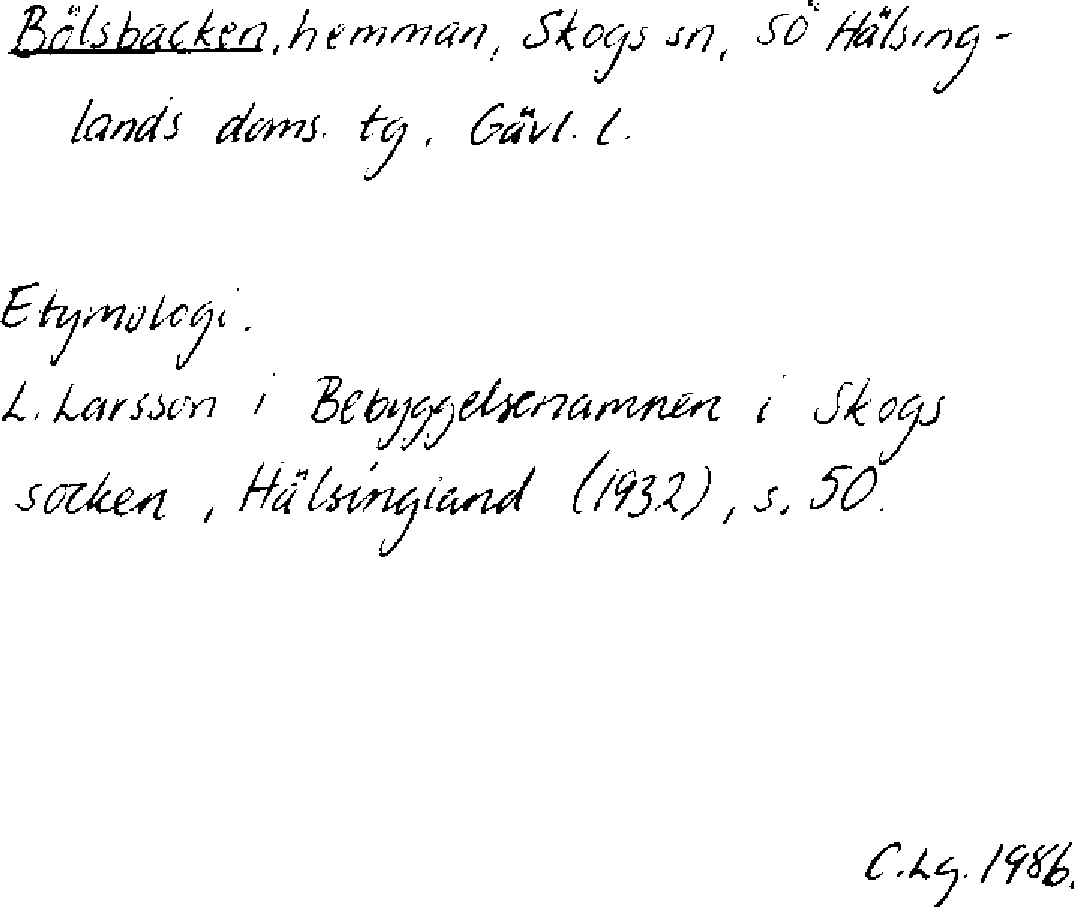 Bölsbacken, hemman, Skogs sn, SÖ Hälsing-
lands doms. tg, Gävl. l.
Etymologi.
L. Larsson i Bebyggelsenamnen i Skogs
socken, Hälsingland (1932), s. 50.
C.Lg. 1986.